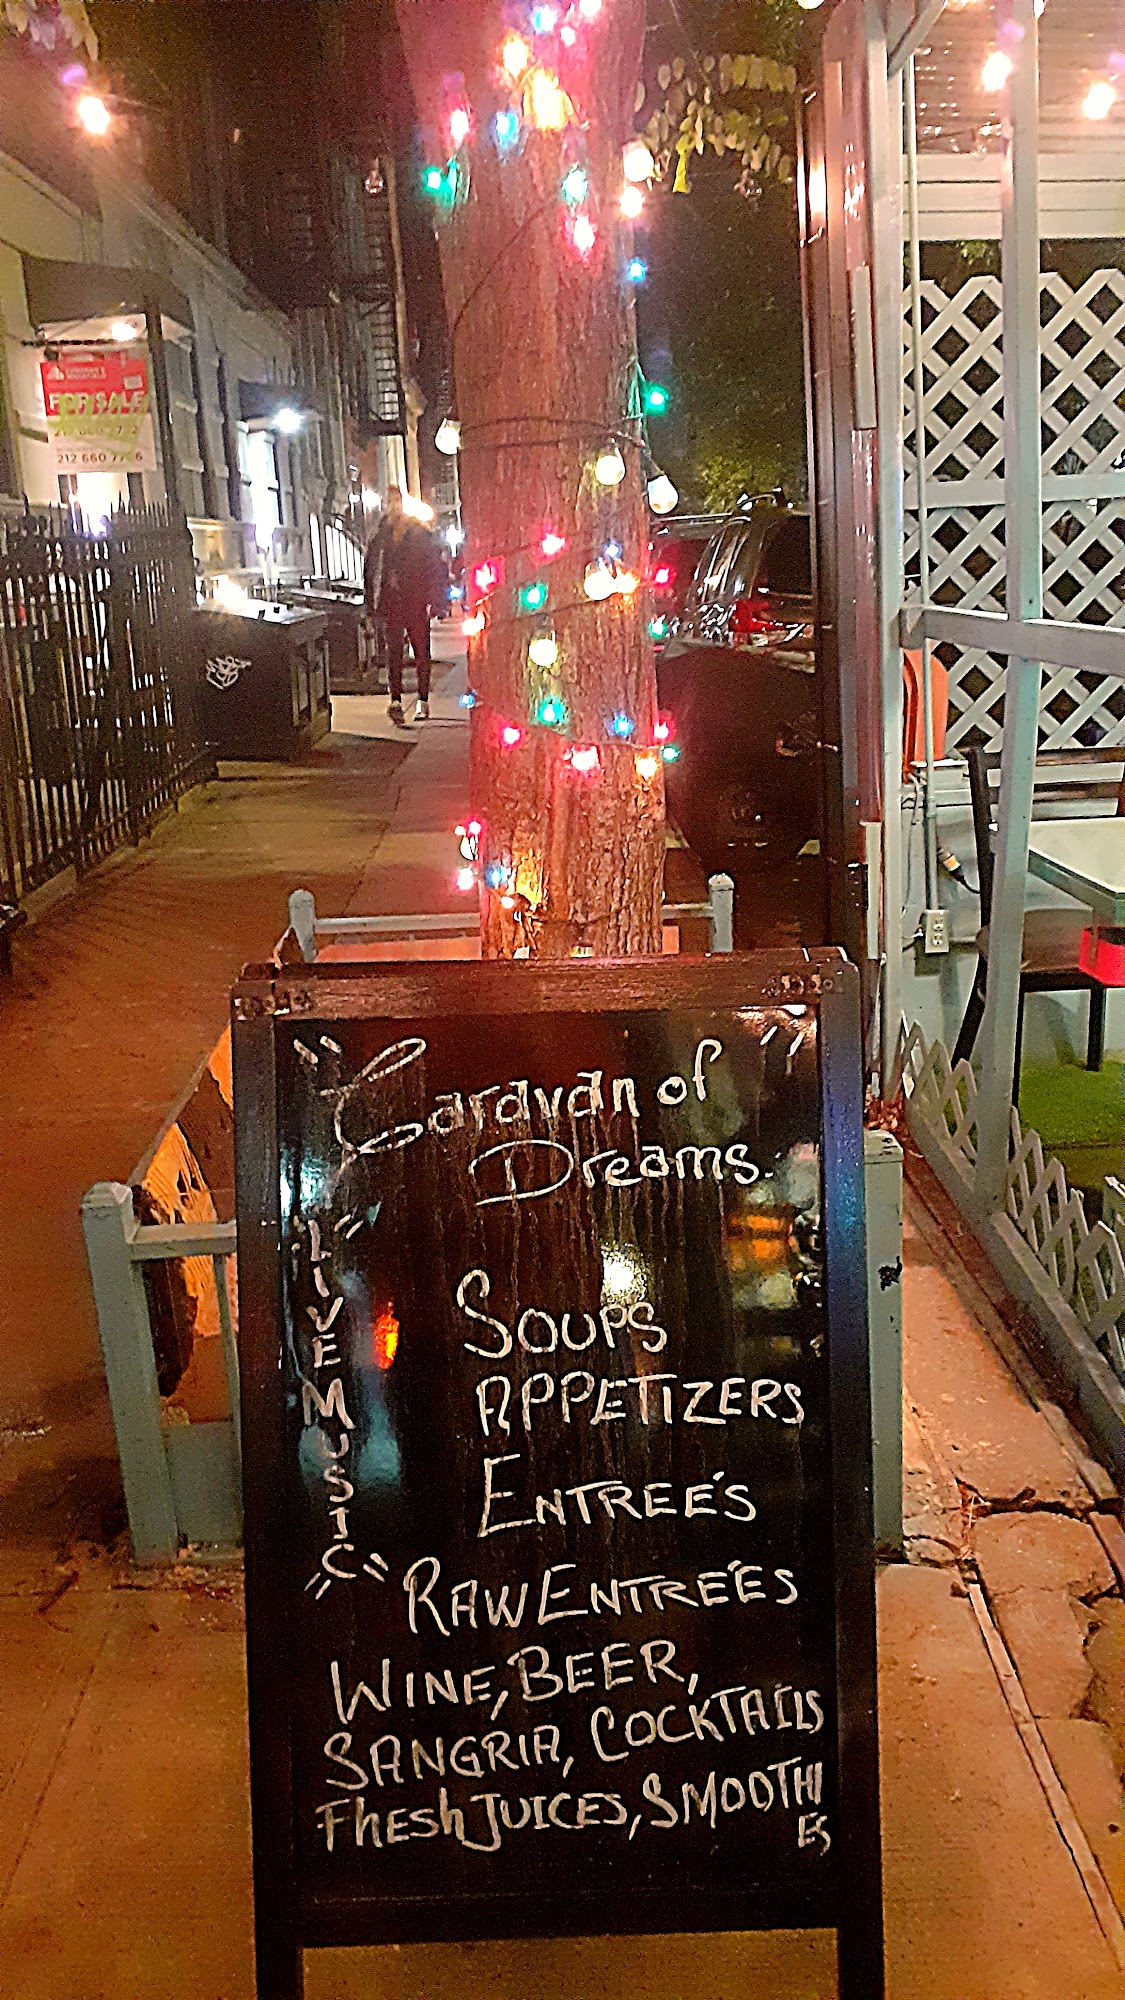 FOR SALE
212 660 77
" Caravan of "
Dreams.
"LIVE MUSIC"
SOUPS
APPETIZERS
ENTREÉS
RAW ENTREÉS
WINE, BEER,
SANGRIA, COCKTAILS
FhEShJUICES, SMOOTHI
ES